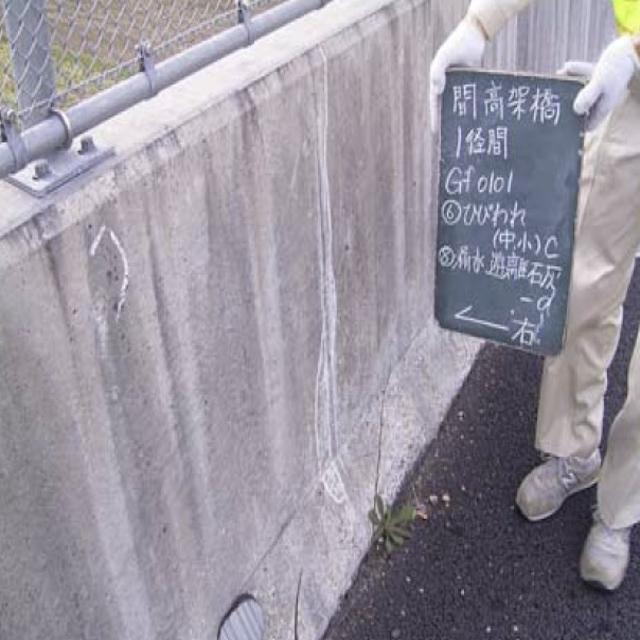 間高架橋
1径間
Gf0101
⑥ひびわれ
(中小)C
⑧漏水遊離石灰
-d
←右